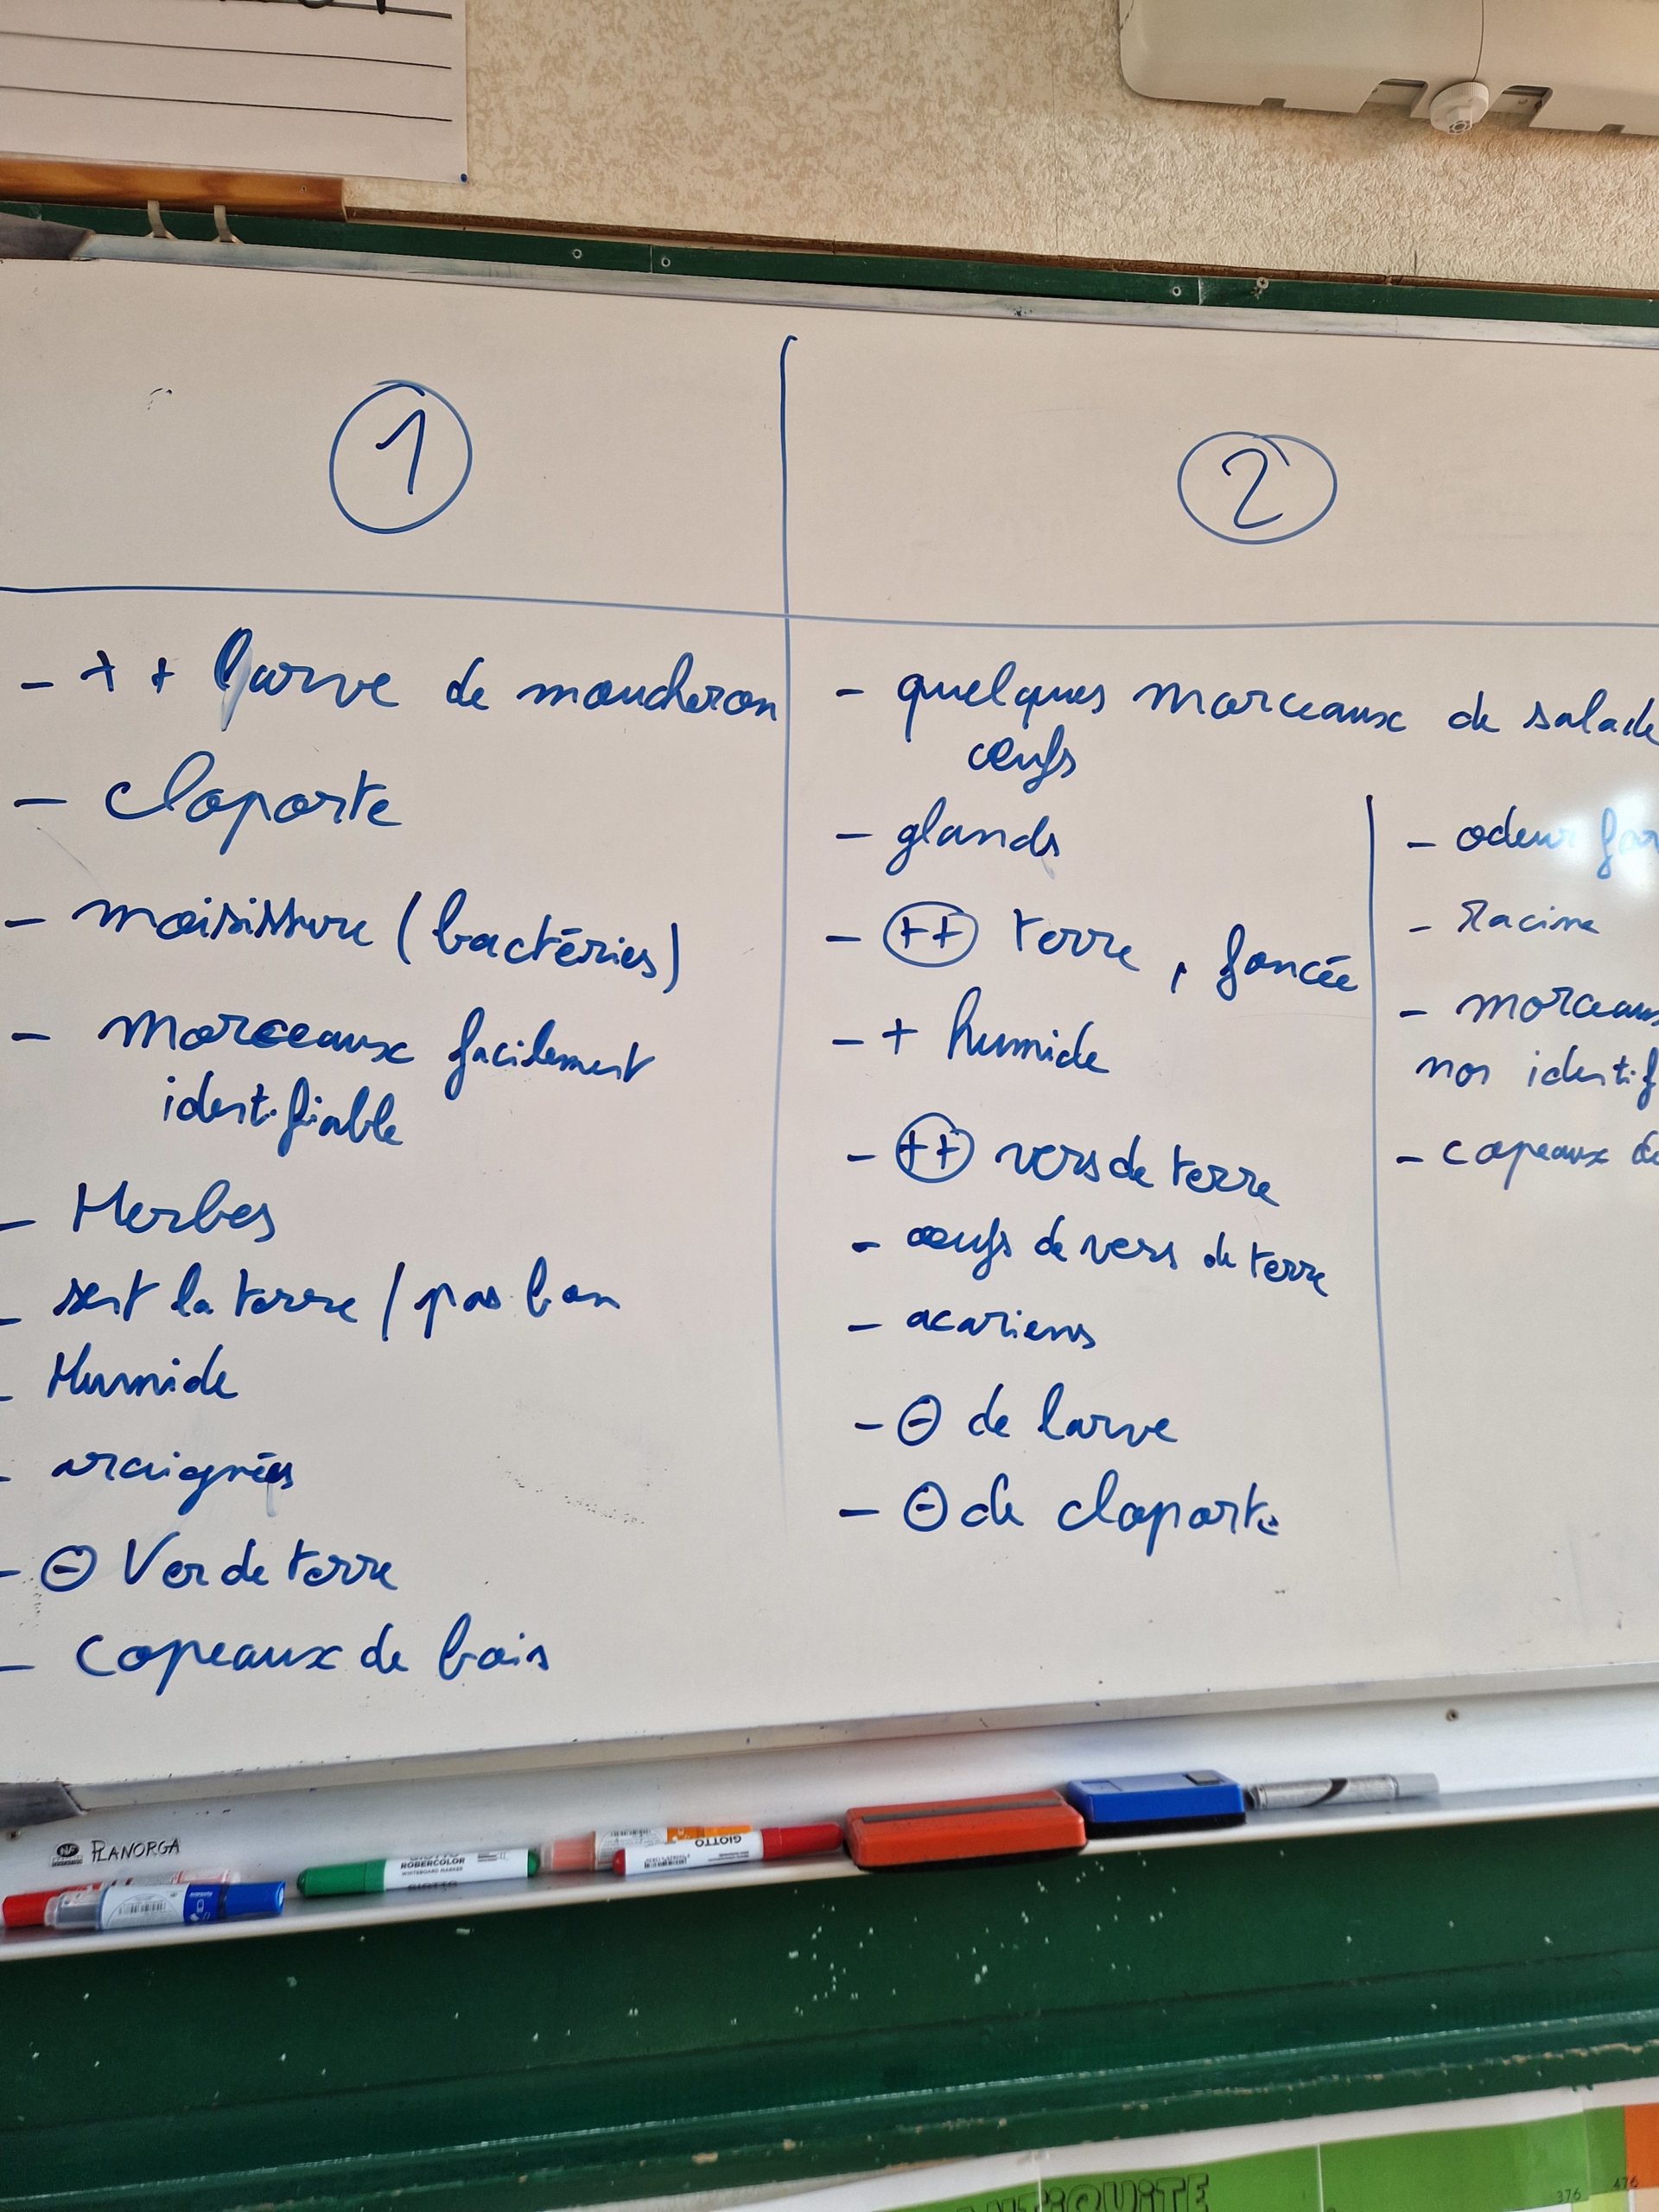 1
- + + larve de moucheron
- cloporte
- moisissure (bactéries)
- morceaux facilement
identifiable
- Herbes
- sent la terre / pas bon
- Humide
- araignées
- ⊖ Ver de terre
- copeaux de bois
2
- quelques morceaux de salade
oeufs
- glands
- ++ terre, foncée
- + humide
- ++ vers de terre
- oeufs de vers de terre
- acariens
- ⊖ de larve
- ⊖ de cloporte
- odeur
- racine
- morceaux
non identif
- copeaux de
NF PLANORGA
GIOTTO
ROBERCOLOR
WHITEBOARD MARKER
GIOTTO
ANTIQUITÉ
376
476